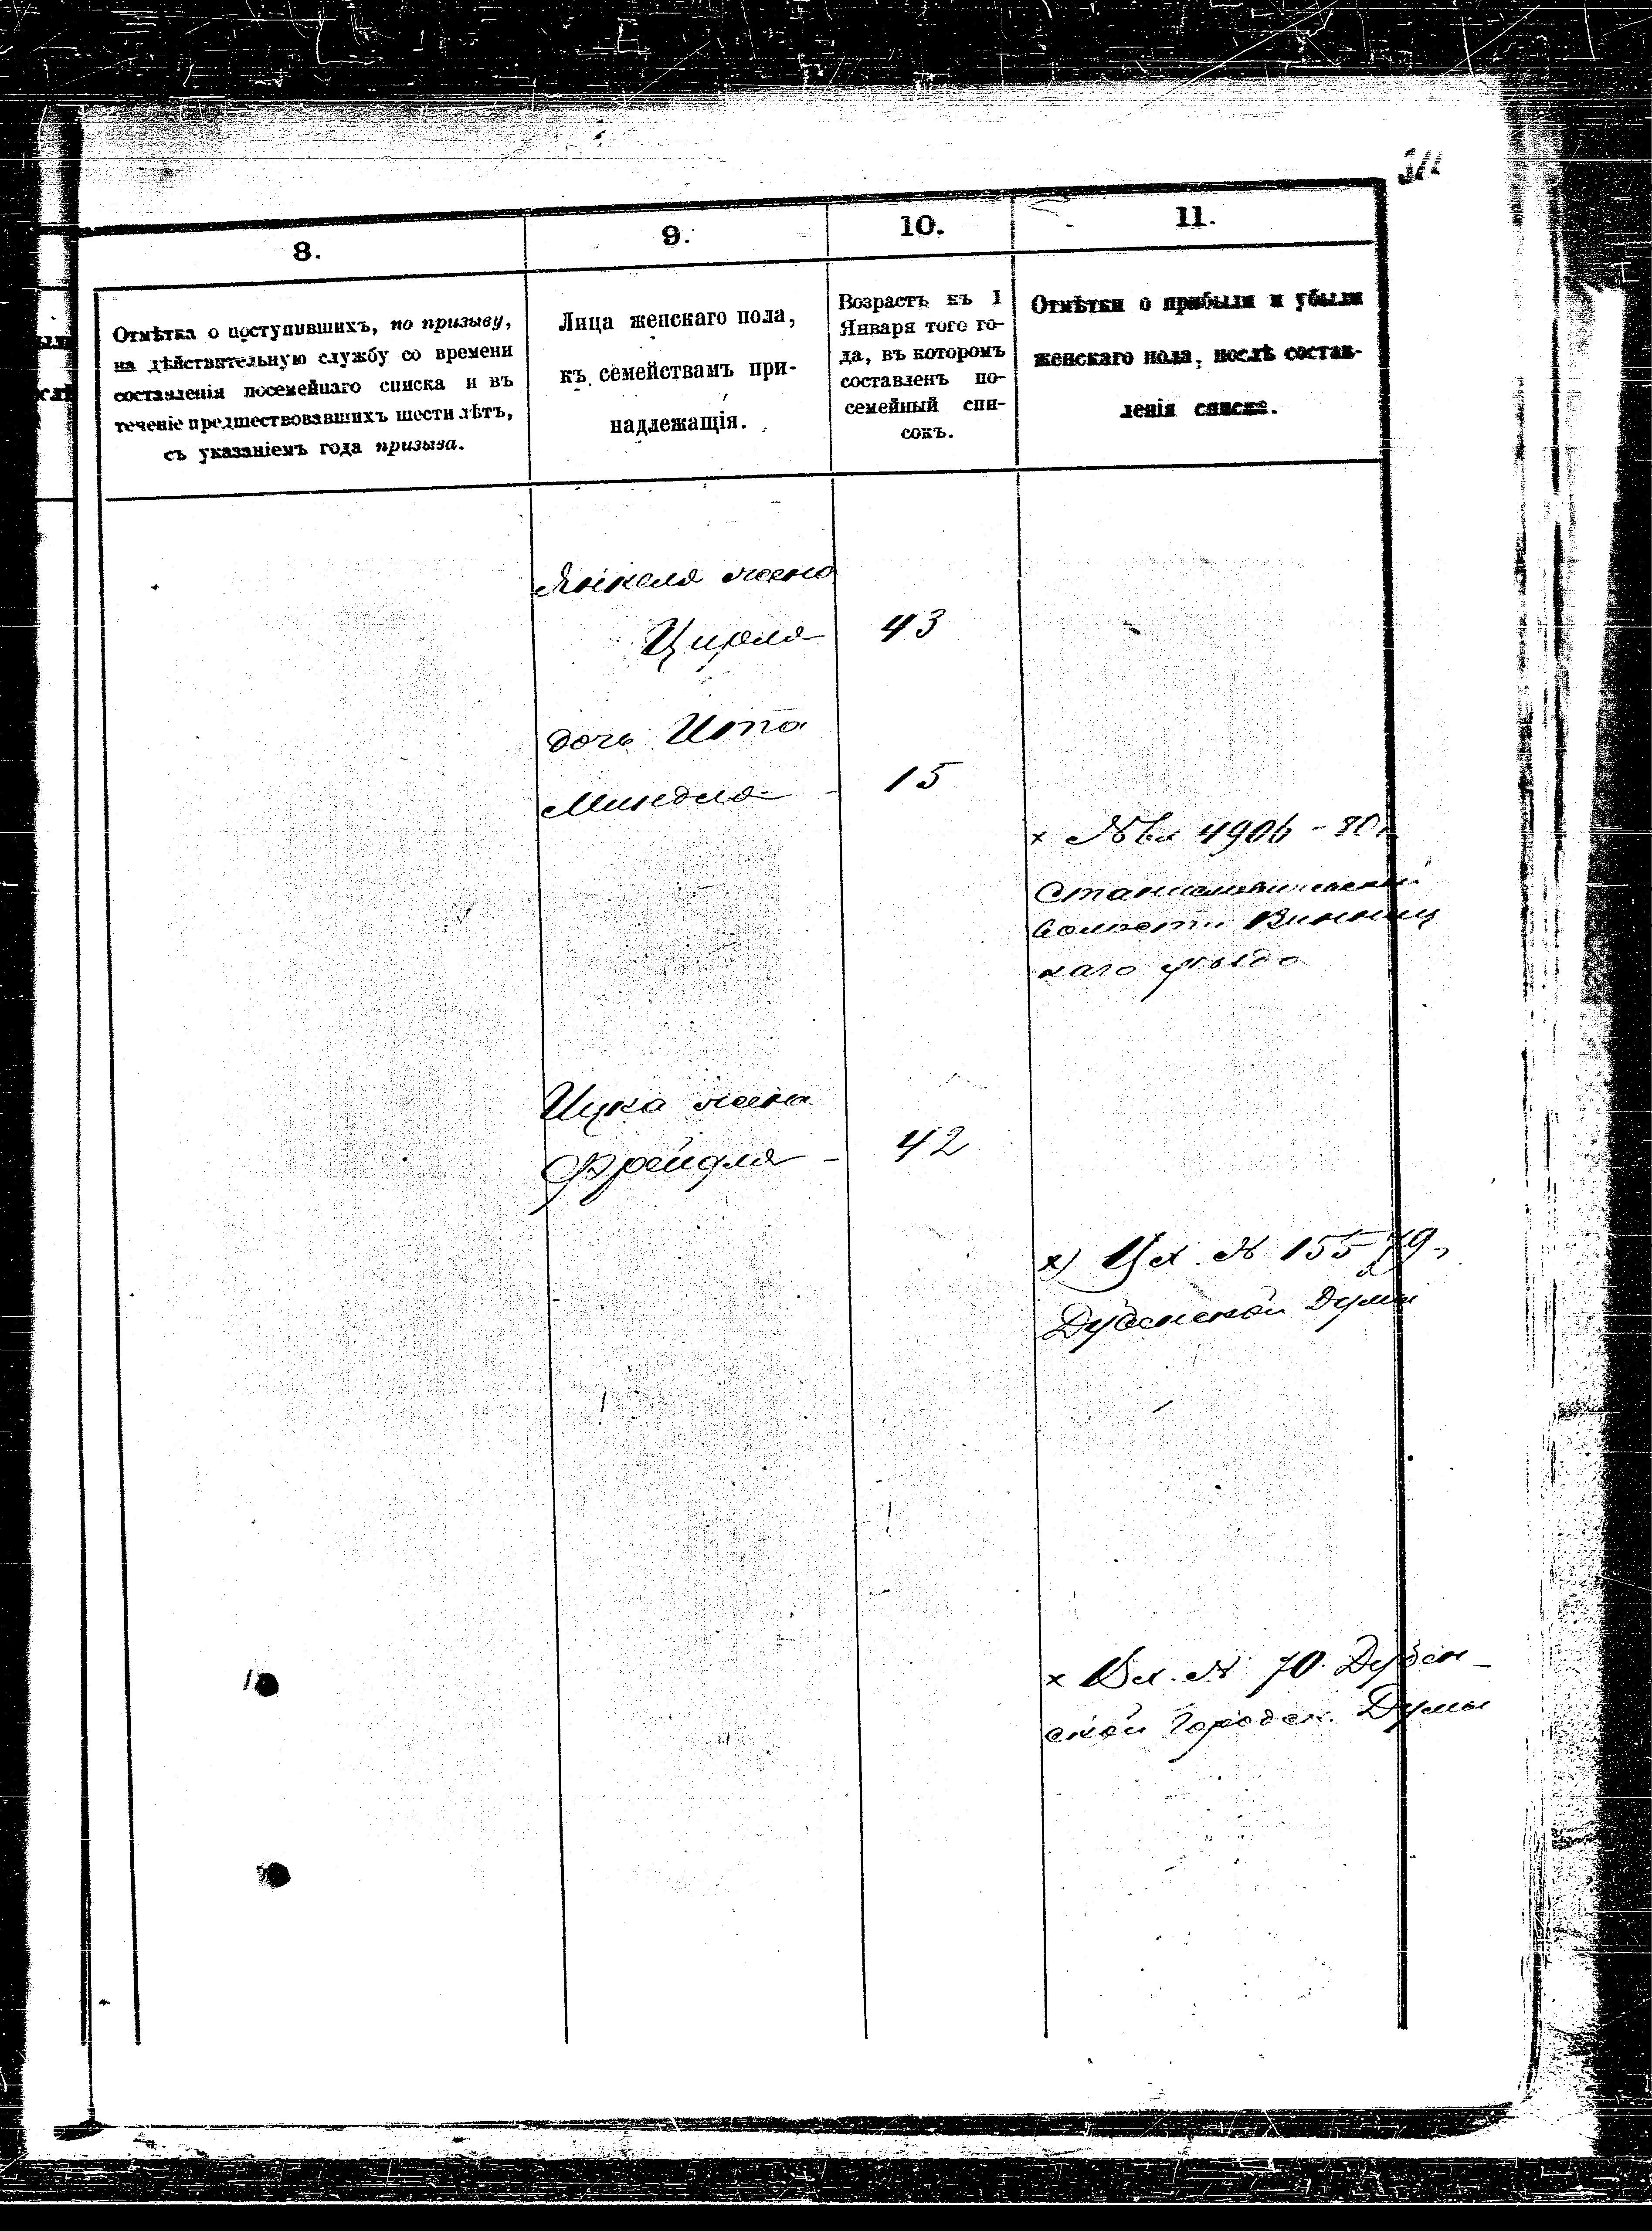 8.
9.
10.
11.
Отмѣтка о поступившихъ, по призыву,
на дѣйствительную службу со времени
составленія посемейнаго списка и въ
теченіе предшествовавшихъ шести лѣтъ,
съ указаніемъ года призыва.
Лица женскаго пола,
къ семействамъ при-
надлежащія.
Возрастъ къ 1
Января того го-
да, въ которомъ
составленъ по-
семейный спи-
сокъ.
Отмѣтки о прибыли и убыли
женскаго пола, послѣ состав-
ленія списка.
Янкеля жена
Цирля 43
дочь Ита
Миндля - 15
х 4906 - 80
волости Винниц
каго уѣзда
Ицка жена
Фрейдля - 42
х) № 155 79
Дубенской Думы
х Вх. № 70. Дубен-
ской Городск. Думы